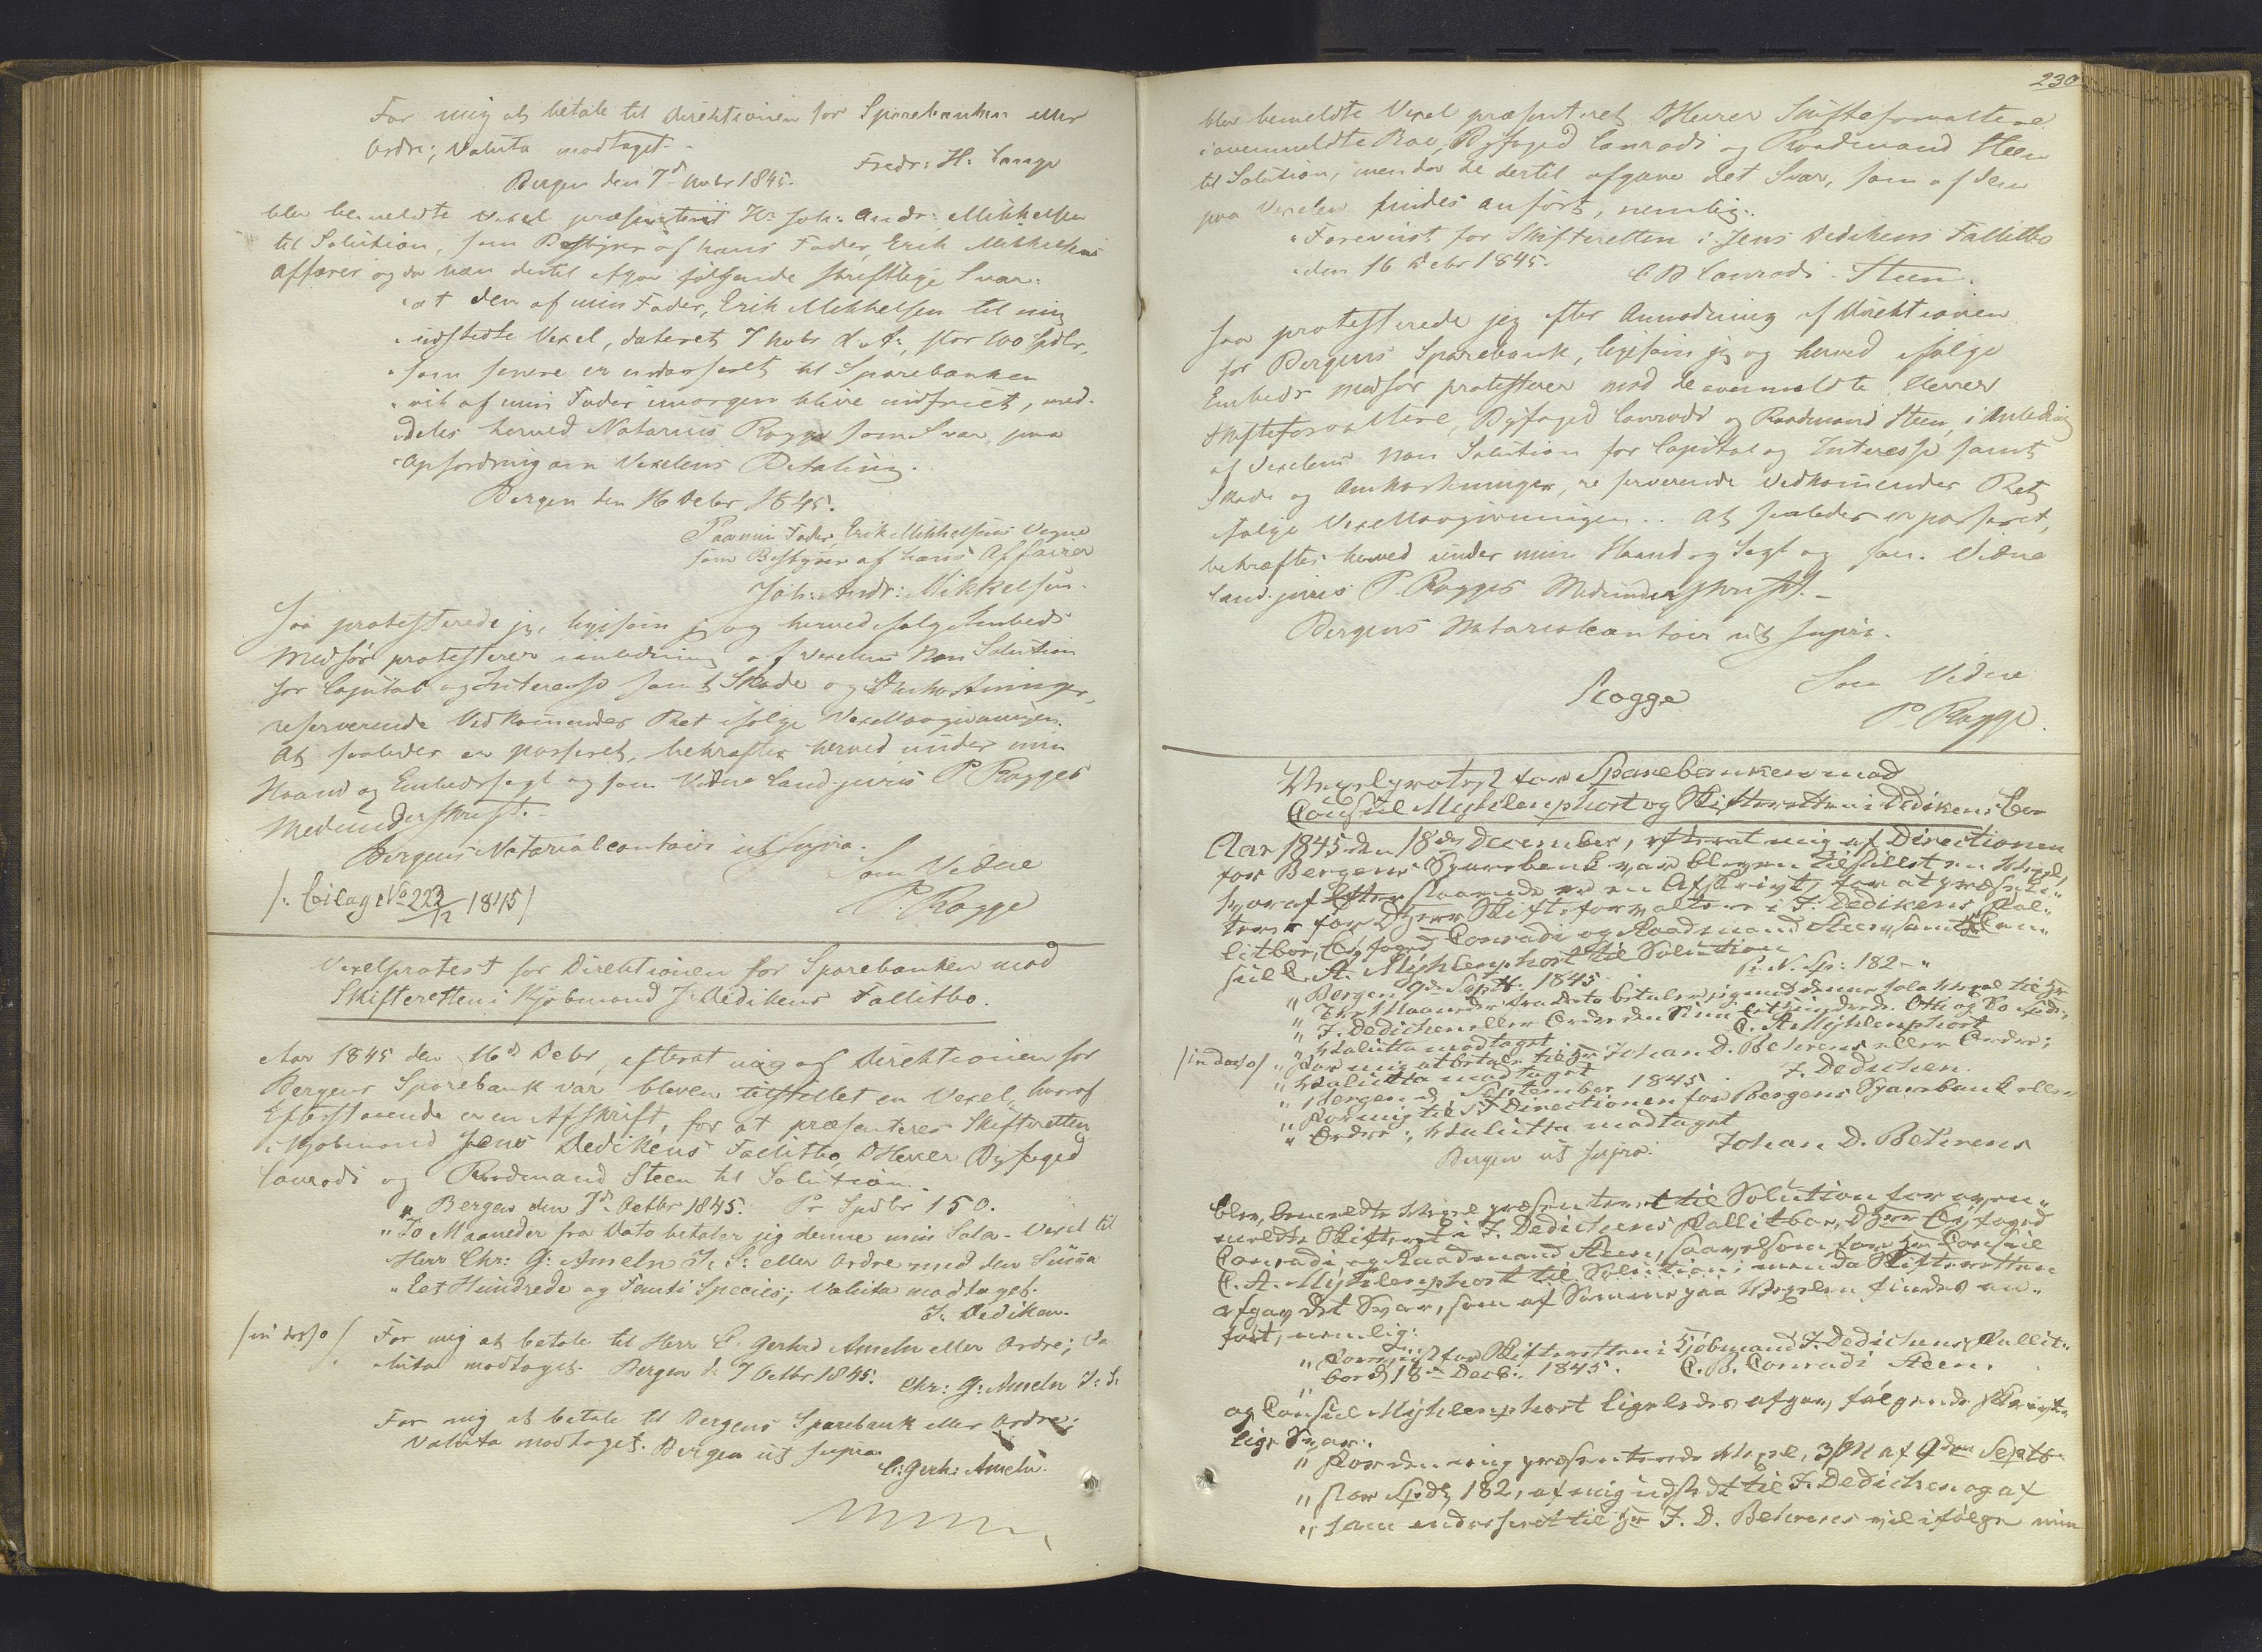 For mig at betale til Direktionen for Sparebanken eller
Ordre; Valuta modtaget.
Bergen den 7d Novbr 1845. Fredr: H: Lange
blev bemeldte Vexel præsenteret Hr Joh: Andr: Mikkelsen
til Solution, som Bestyrer af hans Fader, Erik Mikkelsens
Affærer og da han dertil afgav følgende skriftlige Svar:
"at den af min Fader, Erik Mikkelsen til mig
"udstedte Vexel, dateret 7 Novbr d. A:, stor 100 Spdlr,
"som senere er endosseret til Sparebanken
"vil af min Fader imorgen blive indfriet, med-
"deles herved Notarius Rogge som Svar paa
"Opfordring om Vexelens Betaling.
Bergen den 16 Debr 1845.
Paa min Fader, Erik Mikkelsens Vegne
som Bestyrer af hans Affairer
Joh: Andr: Mikkelsen.
Saa protesterede jeg, ligesom jeg og herved ifølge Embeds
Medfør protesterer i Anledning af Vexelens Non Solution
for Capital og Interesse samt Skade og Omkostninger,
reserverende Vedkommendes Ret ifølge Vexellovgivningen.
At saaledes er passeret, bekræftes herved under min
Haand og Embedssegl og som Vidne Cand. juris P Rogges
Medunderskrift.
Bergens Notarialcontoir ut supra.
Som Vidne
P. Rogge
/: Bilag No 223/12 1845/
Vexelprotest for Direktionen for Sparebanken mod
Skifteretten i Kjøbmand J: Dedikens Fallitbo.
Aar 1845 den 16d Debr, efterat mig af Direktionen for
Bergens Sparebank var bleven tilstillet en Vexel, hvoraf
Efterstaaende er en Afskrift, for at præsenteres Skifteretten
i Kjøbmand Jens Dedikens Fallitbo, DHerrer Byfoged
Conradi og Raadmand Steen til Solution.
"Bergen den 7d Octbr 1845. Pr Spdlr 150.
"To Maaneder fra Dato betaler jeg denne min Sola-Vexel til
Herr Chr: G: Ameln J: S: eller Ordre med den Summa
"Eet Hundrede og Femti Species; Valuta modtaget.
J. Dediken.
/in dosso/ For mig at betale til Herr C. Gerhrd Ameln eller Ordre; Va
luta modtaget. Bergen d. 7 Octbr 1845. Chr: G: Ameln J: S:
For mig at betale til Bergens Sparebank eller Ordre;
Valuta modtaget. Bergen ut supra
C: Gerh: Ameln.
230
blev bemeldte Vexel præsenteret DHerrer Skifteforvaltere
i ovenmeldte Boe, Byfoged Conradi og Raadmand Steen
til Solution, men da de dertil afgave det Svar, som af dem
paa Vexelen findes anført, nemlig:
"Foreviist for Skifteretten i Jens Dedikens Fallitbo
"den 16 Debr 1845. C B Conradi - Steen.
saa protesterede jeg efter Anmodning af Direktionen
for Bergens Sparebank, ligesom jeg og herved ifølge
Embeds Medfør protesterer mod de ovenmeldte Herrer
Skifteforvaltere, Byfoged Conradi og Raadmand Steen, i Anledning
af Vexelens Non Solution for Capital og Interesse samt
Skade og Omkostninger, reserverende Vedkommendes Ret
ifølge Vexellovgivningen. At saaledes er passeret,
bekræftes herved under min Haand og Segl og som Vidne
Cand. juris P. Rogges Medunderskrift.
Bergens Notarialcontoir ut supra.
Rogge Som Vidne
P. Rogge.
Vexelprotest for Sparebanken mod
Consul Myhlenphort og Skifteretten i Dedikens Boe
Aar 1845 den 18de December, efterat mig af Directionen
for Bergens Sparebank var bleven tilstillet en Vexel,
hvoraf Efterstaaende er en Afskrift, for at præsen-
teres for DHerr Skifteforvaltere i J: Dedikens Fal-
litboe, Byfoged Conradi og Raadmand Steen, samt Hr Con-
sul C. A. Myhlenphort til Solution
"Bergen 9de Septb: 1845. Pr. N. Sp: 182 - "
"Tre Maaneder fra Dato betaler jeg med denne sola Vexel til Hr
"J. Dedichen eller Ordre den Sum Eet Hundrede Otti og To Spd:,
"Valutta modtaget C. A Myhlenphort
/in dosso/ "For mig at betale til Hr Johan D. Behrens eller Ordre;
"Valutta modtaget J. Dedichen.
"Bergen d. September 1845.
"For mig til S. T. Directionen for Bergens Sparebank eller
"Ordre; Valutta modtaget
Bergen ut supra. Johan D. Behrens
blev bemeldte Vexel præsenteret til Solution for oven-
meldte Skifteret i J. Dedichens Fallitboe, DHerr Byfoged
Conradi og Raadmand Steen, saavelsom for Hr Consul
C. A. Myhlenphort til Solution; men da Skifteretten
afgav det Svar, som af Samme paa Vexelen findes an-
ført, nemlig:
"Foreviist for Skifteretten i Kjøbmand J. Dedichens Fallit-
bo d 18de Decb: 1845. C. B. Conradi Steen.
og Consul Myhlenphort ligeledes afgav følgende skrift-
lige Svar:
"For den mig præsenterede Vexel, 3/M af 9den Septb
"stor Spd 182, af mig udstedt til J. Dedichen og af
"ham endosseret til Hr J. D. Behrens vil ifølge min